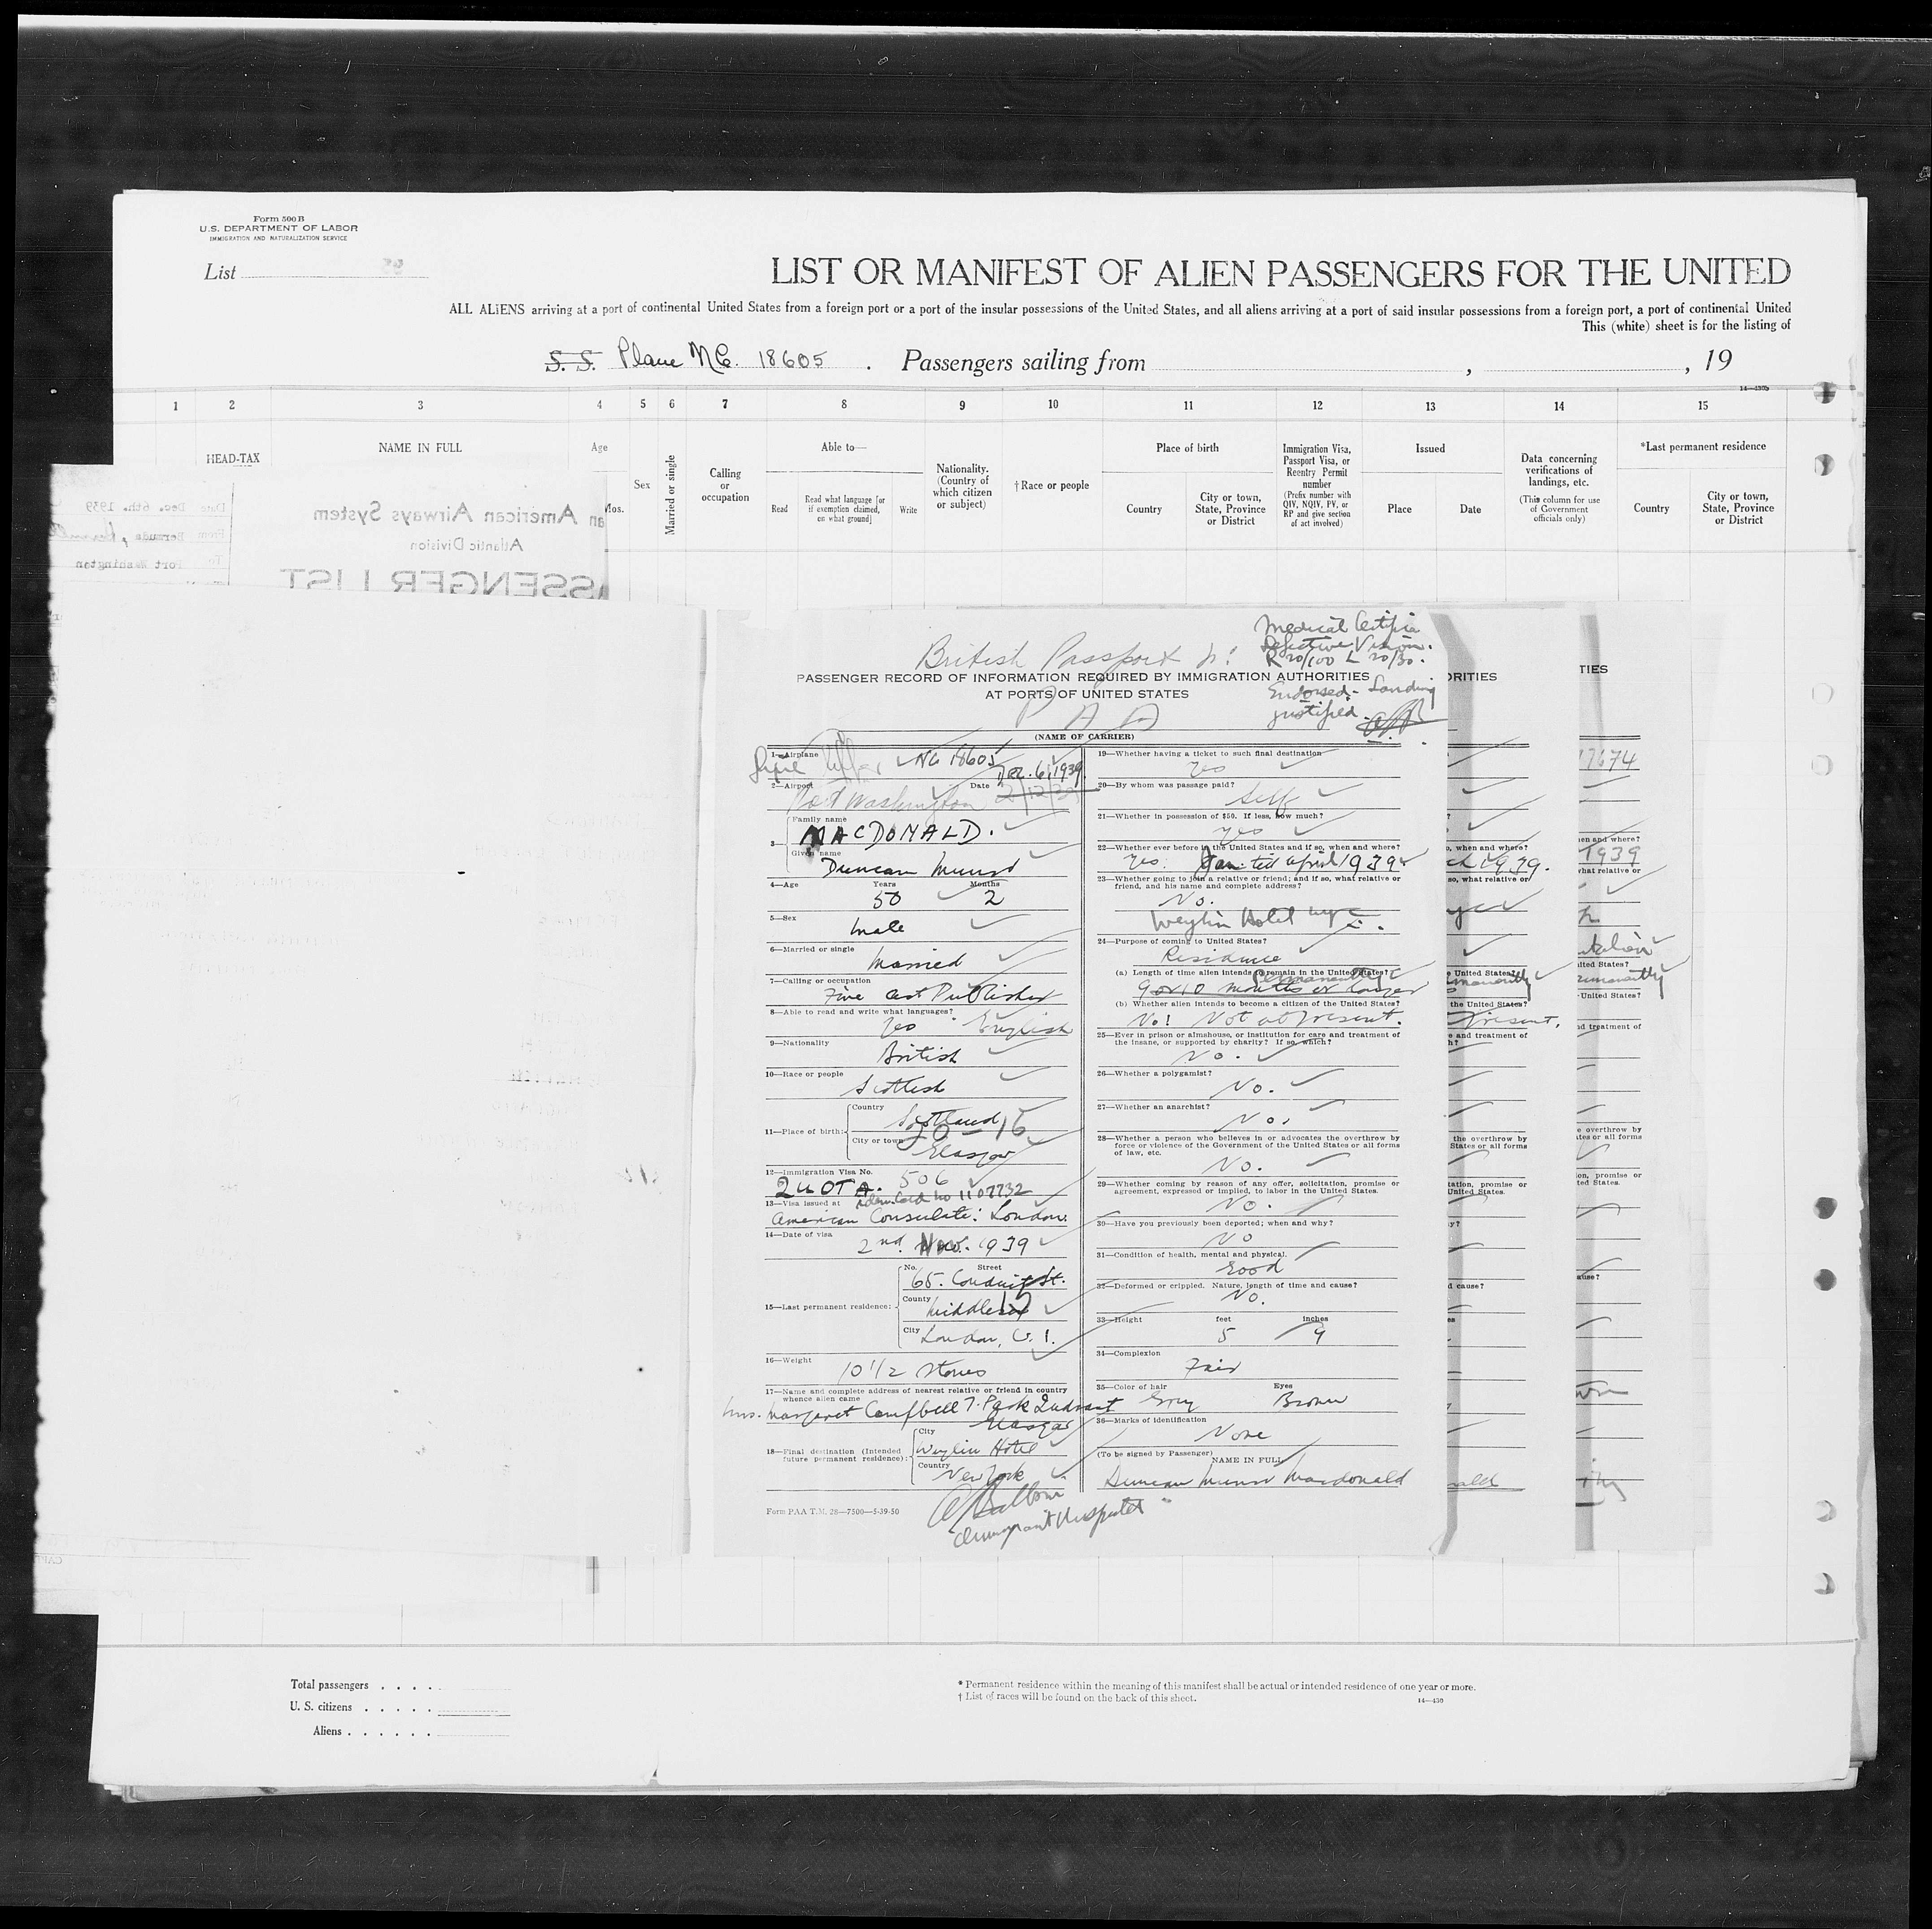 Form 500 B
U.S. DEPARTMENT OF LABOR
IMMIGRATION AND NATURALIZATION SERVICE
List
LIST OR MANIFEST OF ALIEN PASSENGERS FOR THE UNITED
ALL ALIENS arriving at a port of continental United States from a foreign port or a port of the insular possessions of the United States, and all aliens arriving at a port of said insular possessions from a foreign port, a port of continental United
This (white) sheet is for the listing of
S. S. Plane NC. 18605 . Passengers sailing from , , 19
1 2 3 4 5 6 7 8 9 10 11 12 13 14 15
HEAD-TAX
NAME IN FULL
Age
Mos.
Sex
Married or single
Calling or occupation
Able to—
Read
Read what language [or if exemption claimed, on what ground]
Write
Nationality. (Country of which citizen or subject)
†Race or people
Place of birth
Country
City or town, State, Province or District
Immigration Visa, Passport Visa, or Reentry Permit number
(Prefix number with QIV, NQIV, PV, or RP and give section of act involved)
Issued
Place
Date
Data concerning verifications of landings, etc.
(This column for use of Government officials only)
*Last permanent residence
Country
City or town, State, Province or District
Date Dec. 6th. 1939
From Bermuda,
To Port Washington
an American Airways System
Atlantic Division
ASSENGER LIST
British Passport
Medical Certific
Defective Vision.
R 20/100 L 20/30.
PASSENGER RECORD OF INFORMATION REQUIRED BY IMMIGRATION AUTHORITIES
AT PORTS OF UNITED STATES
Endorsed - Landing
justified.
P A A
(NAME OF CARRIER)
1—Airplane NC 18605
Dec. 6, 1939.
2—Airport Port Washington Date 2/12/39
3— Family name MACDONALD.
Given name Duncan Munro
4—Age Years 50 Months 2
5—Sex male
6—Married or single Married
7—Calling or occupation Fine art Publisher
8—Able to read and write what languages? Yes English
9—Nationality British
10—Race or people Scottish
11—Place of birth: Country Scotland
City or town Glasgow
12—Immigration Visa No. QUOTA. 506
Iden. Card no 1107732
13—Visa issued at American Consulate: London.
14—Date of visa 2nd. Nov. 1939
15—Last permanent residence: No. Street 65. Conduit St.
County Middlesex
City London, W. 1.
16—Weight 10 1/2 Stones
17—Name and complete address of nearest relative or friend in country whence alien came
Mrs. Margaret Campbell 7. Park Quadrant
Glasgow
18—Final destination (Intended future permanent residence): City Weylin Hotel
Country New York
Form PAA T.M. 28—7500—5-39-50
19—Whether having a ticket to such final destination
Yes
20—By whom was passage paid?
Self
21—Whether in possession of $50. If less, how much?
Yes
22—Whether ever before in the United States and if so, when and where?
Yes. Jan. till April 1939
23—Whether going to join a relative or friend; and if so, what relative or friend, and his name and complete address?
No.
Weylin Hotel nyc
24—Purpose of coming to United States?
Residence
(a) Length of time alien intends to remain in the United States?
Permanently
9 or 10 months or longer
(b) Whether alien intends to become a citizen of the United States?
No! Not at present.
25—Ever in prison or almshouse, or institution for care and treatment of the insane, or supported by charity? If so, which?
No.
26—Whether a polygamist?
No.
27—Whether an anarchist?
No.
28—Whether a person who believes in or advocates the overthrow by force or violence of the Government of the United States or all forms of law, etc.
No.
29—Whether coming by reason of any offer, solicitation, promise or agreement, expressed or implied, to labor in the United States.
No.
30—Have you previously been deported; when and why?
No
31—Condition of health, mental and physical.
Good
32—Deformed or crippled. Nature, length of time and cause?
No.
33—Height feet 5 inches 9
34—Complexion
Fair
35—Color of hair Grey Eyes Brown
36—Marks of identification
None
(To be signed by Passenger) NAME IN FULL
Duncan Munro Macdonald
Immigrant Inspector
Total passengers . . . .
U. S. citizens . . . . .
Aliens . . . . . .
* Permanent residence within the meaning of this manifest shall be actual or intended residence of one year or more.
† List of races will be found on the back of this sheet. 14—430